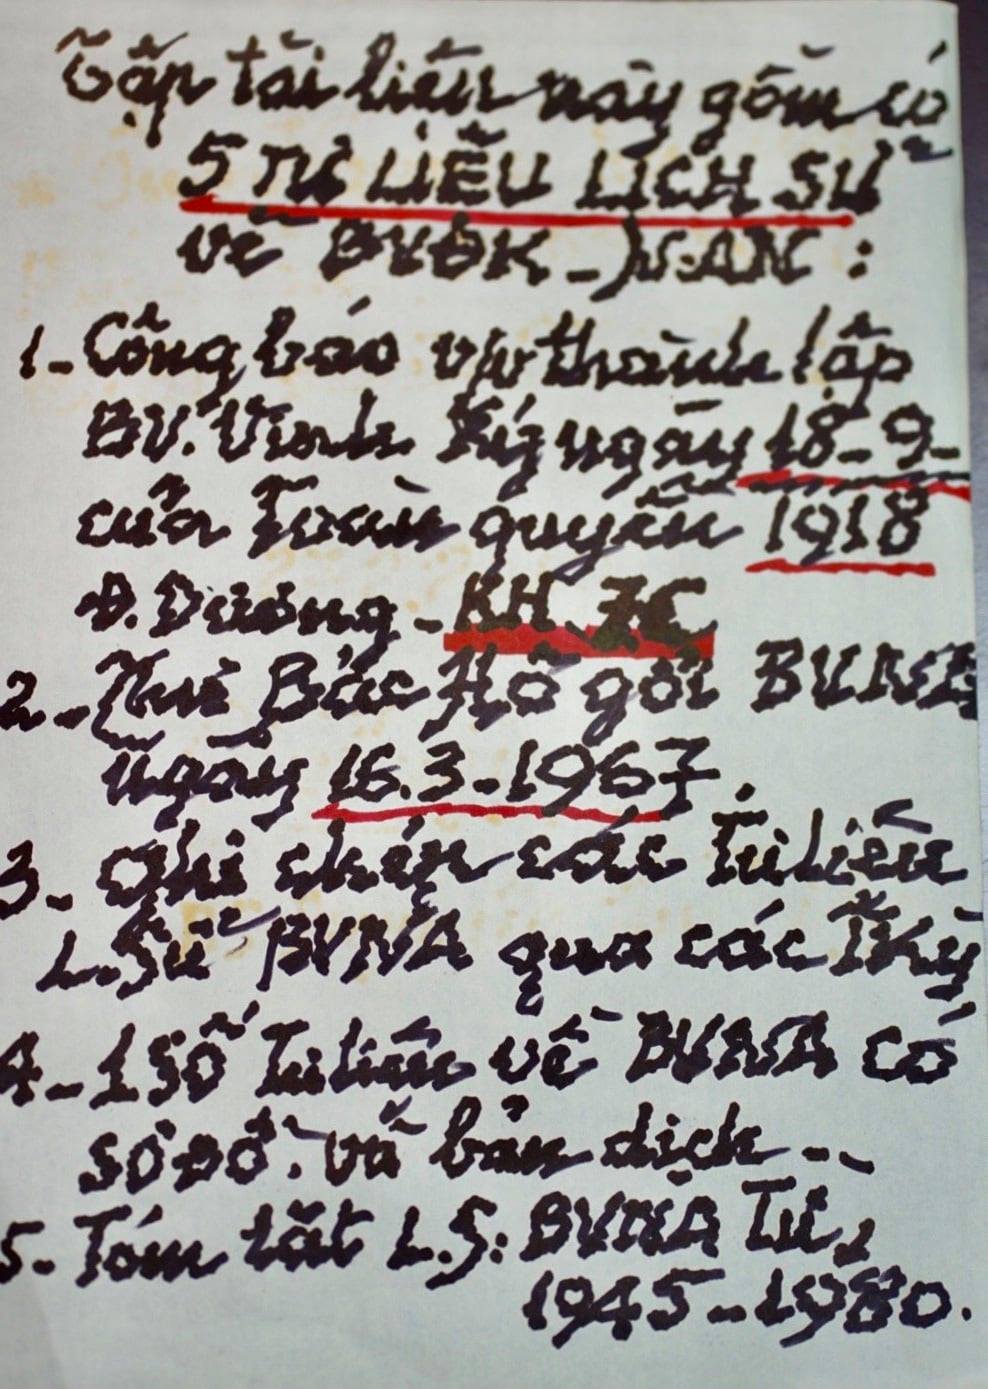 Tập tài liệu này gồm có
5 TƯ LIỆU LỊCH SỬ
về BVĐK - N.AN :
1- Công báo v/v thành lập
BV. Vinh ký ngày 18-9-
của Toàn quyền 1918
Đ. Dương - KH 7C
2- Thư Bác Hồ gởi BVNA
ngày 16.3-1967.
3- Ghi chép các Tư liệu
L.Sử BVNA qua các TKỳ
4- 1 số Tư liệu về BVNA có
sơ đồ và bản dịch --
5- Tóm tắt L.S: BVNA Từ
1945-1980.